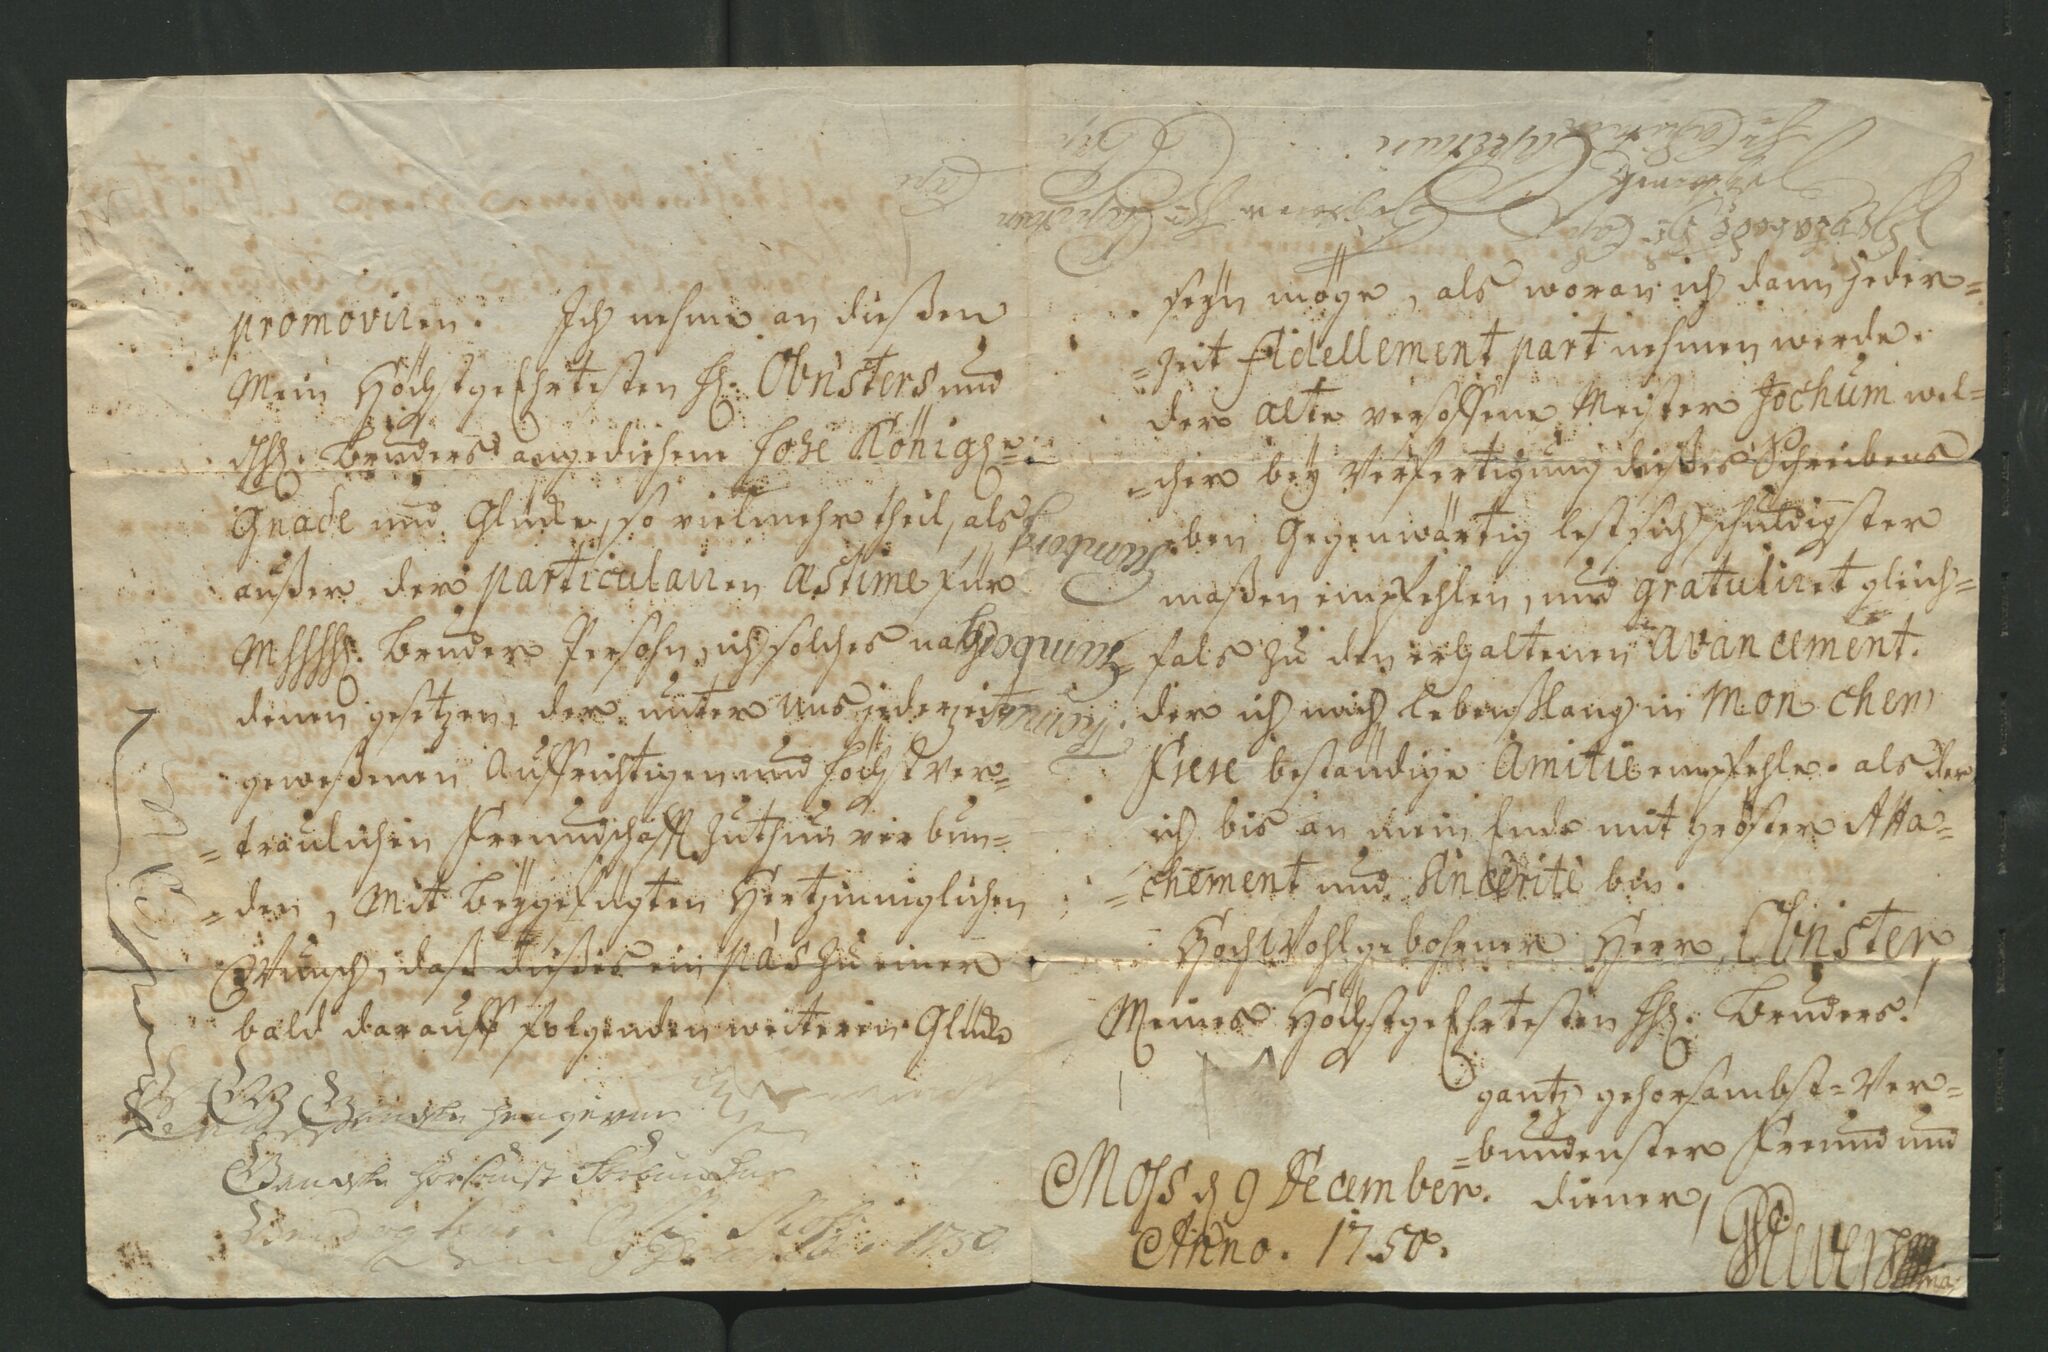 promoviren. Ich nehme an dießen
Mein Höchstgeehrtesten H. Obrüsters und
Bruders angediehene hohe Königl=
Gnade und Glücke, so vielmehr theil, als
außer der particulairen Æstime für
Bruder Persohn, ich solches nach
denen gesetzen, der unter uns jederzeit
geweßenen Auffrichtigen und höchst ver=
=traulichen Freundschafft zuthun verbun=
=den, Mit beygefügten Hertzinniglichen
Wunsch, daß dießes ein pas zu einer
bald darauff folgenden weiteren Glücke
Ganske hengifne
Ganske forbunden
1750
seyn möge, als woran ich dann jeder=
=zeit fidellement part nehmen werde.
der alte versoffene Meister Jochum wel=
=cher bey Verfertigung dießes Schreibens
eben Gegenwärtig lest sich schuldigster
maßen empfehlen, und gratuliret gleich=
=fals zu den erhaltenen Avancement.
der ich mich lebenslang in Mon cher
Frere beständige Amitie empfehle. als der
ich bis an mein Ende mit größter Atta=
=chement und Sincerite bin.
HochWohlgebohrner Herr Obrister,
Meines Höchstgeehrtesten Bruders!
gantz gehorsambst=Ver=
=bundenster Freund und
diener,
Moss d 9 December.
Anno. 1750.